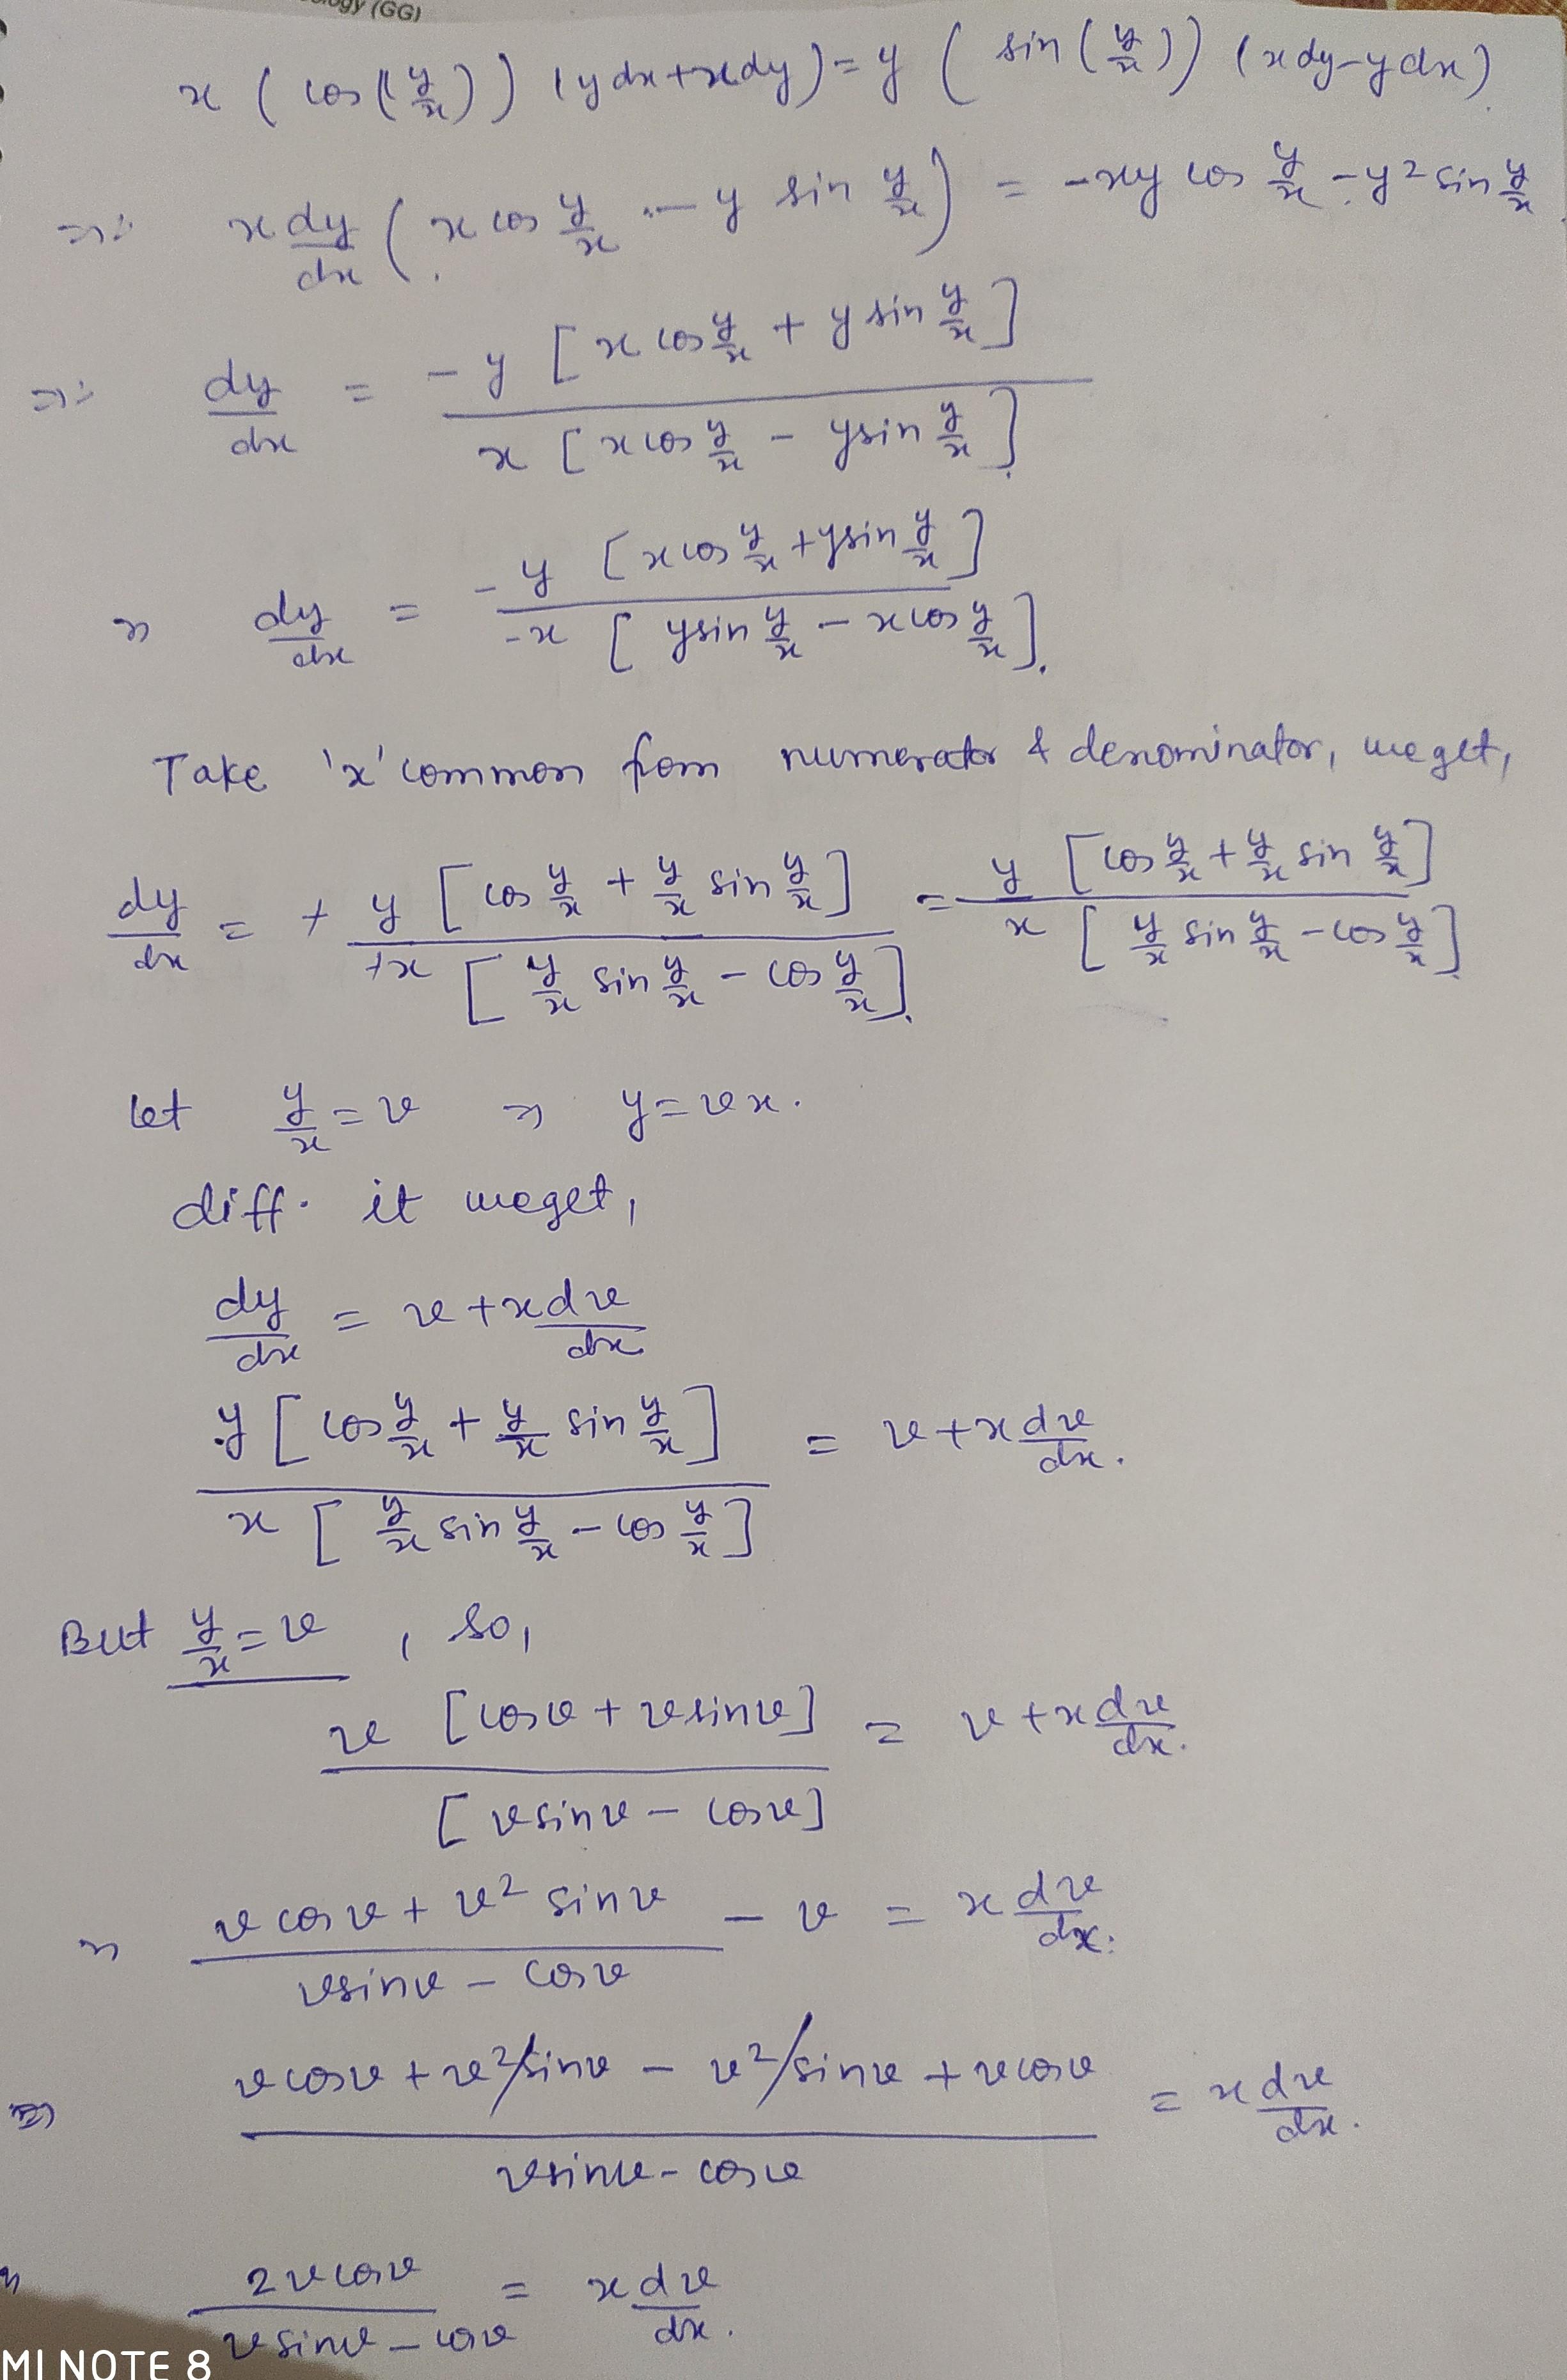 ology (GG)
x ( cos((y/x)) (ydx+xdy) = y ( sin(y/x)) (xdy-ydx)
⇒ x dy/dx ( x cos y/x - y sin y/x ) = -xy cos y/x - y² sin y/x
⇒ dy/dx = -y [x cos y/x + y sin y/x] / x [x cos y/x - y sin y/x]
⇒ dy/dx = -y [x cos y/x + y sin y/x] / -x [y sin y/x - x cos y/x].
Take 'x' common from numerator & denominator, we get,
dy/dx = + y [cos y/x + y/x sin y/x] / +x [y/x sin y/x - cos y/x] = y [cos y/x + y/x sin y/x] / x [y/x sin y/x - cos y/x]
let y/x = v ⇒ y = vx.
diff. it we get,
dy/dx = v + x dv/dx
y [cos y/x + y/x sin y/x] / x [y/x sin y/x - cos y/x] = v + x dv/dx.
But y/x = v , so,
v [cos v + v sin v] / [v sin v - cos v] = v + x dv/dx.
⇒ v cos v + v² sin v / v sin v - cos v - v = x dv/dx.
⇒ v cos v + v² sin v - v² sin v + v cos v / v sin v - cos v = x dv/dx.
⇒ 2v cos v / v sin v - cos v = x dv/dx.
MI NOTE 8